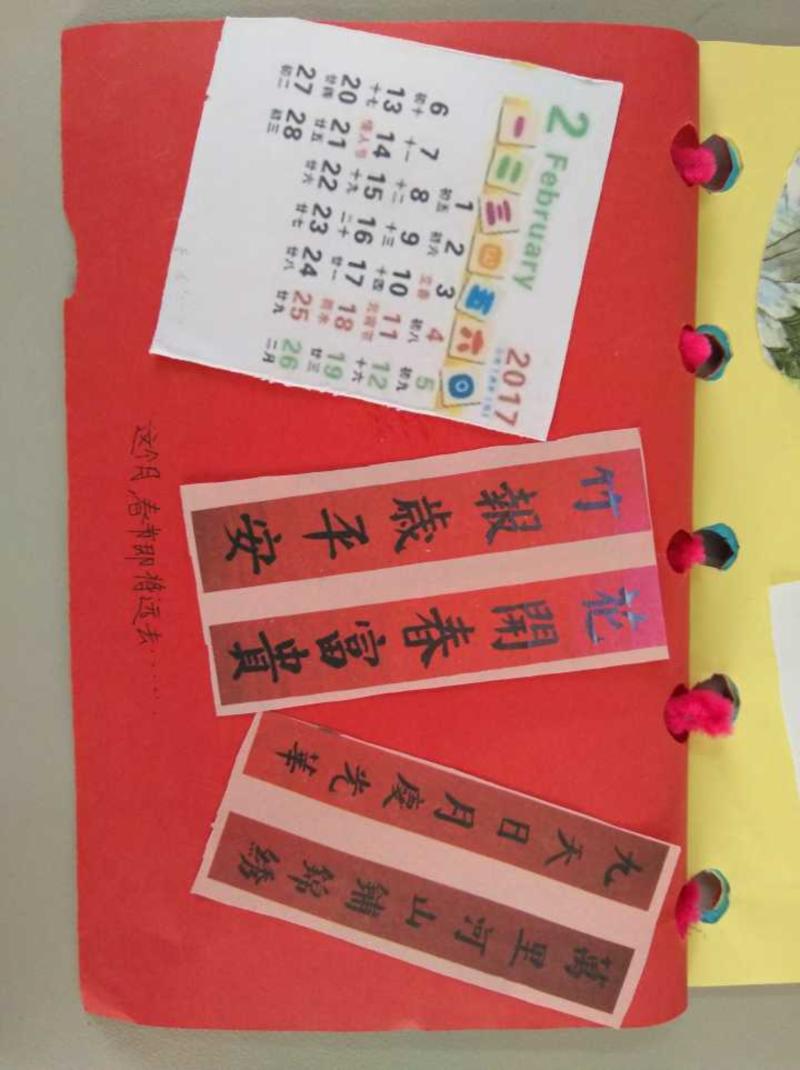 2 February 2017
一 二 三 四 五 六 日
1 2 3 4 5
初五 初六 立春 初八 初九
6 7 8 9 10 11 12
初十 十一 十二 十三 十四 元宵节 十六
13 14 15 16 17 18 19
十七 情人节 十九 二十 廿一 雨水 廿三
20 21 22 23 24 25 26
廿四 廿五 廿六 廿七 廿八 廿九 二月
27 28
初二 初三
竹報歲平安
花開春富貴
九天日月慶光華
萬里河山鋪錦綉
这个月,春节即将远去······